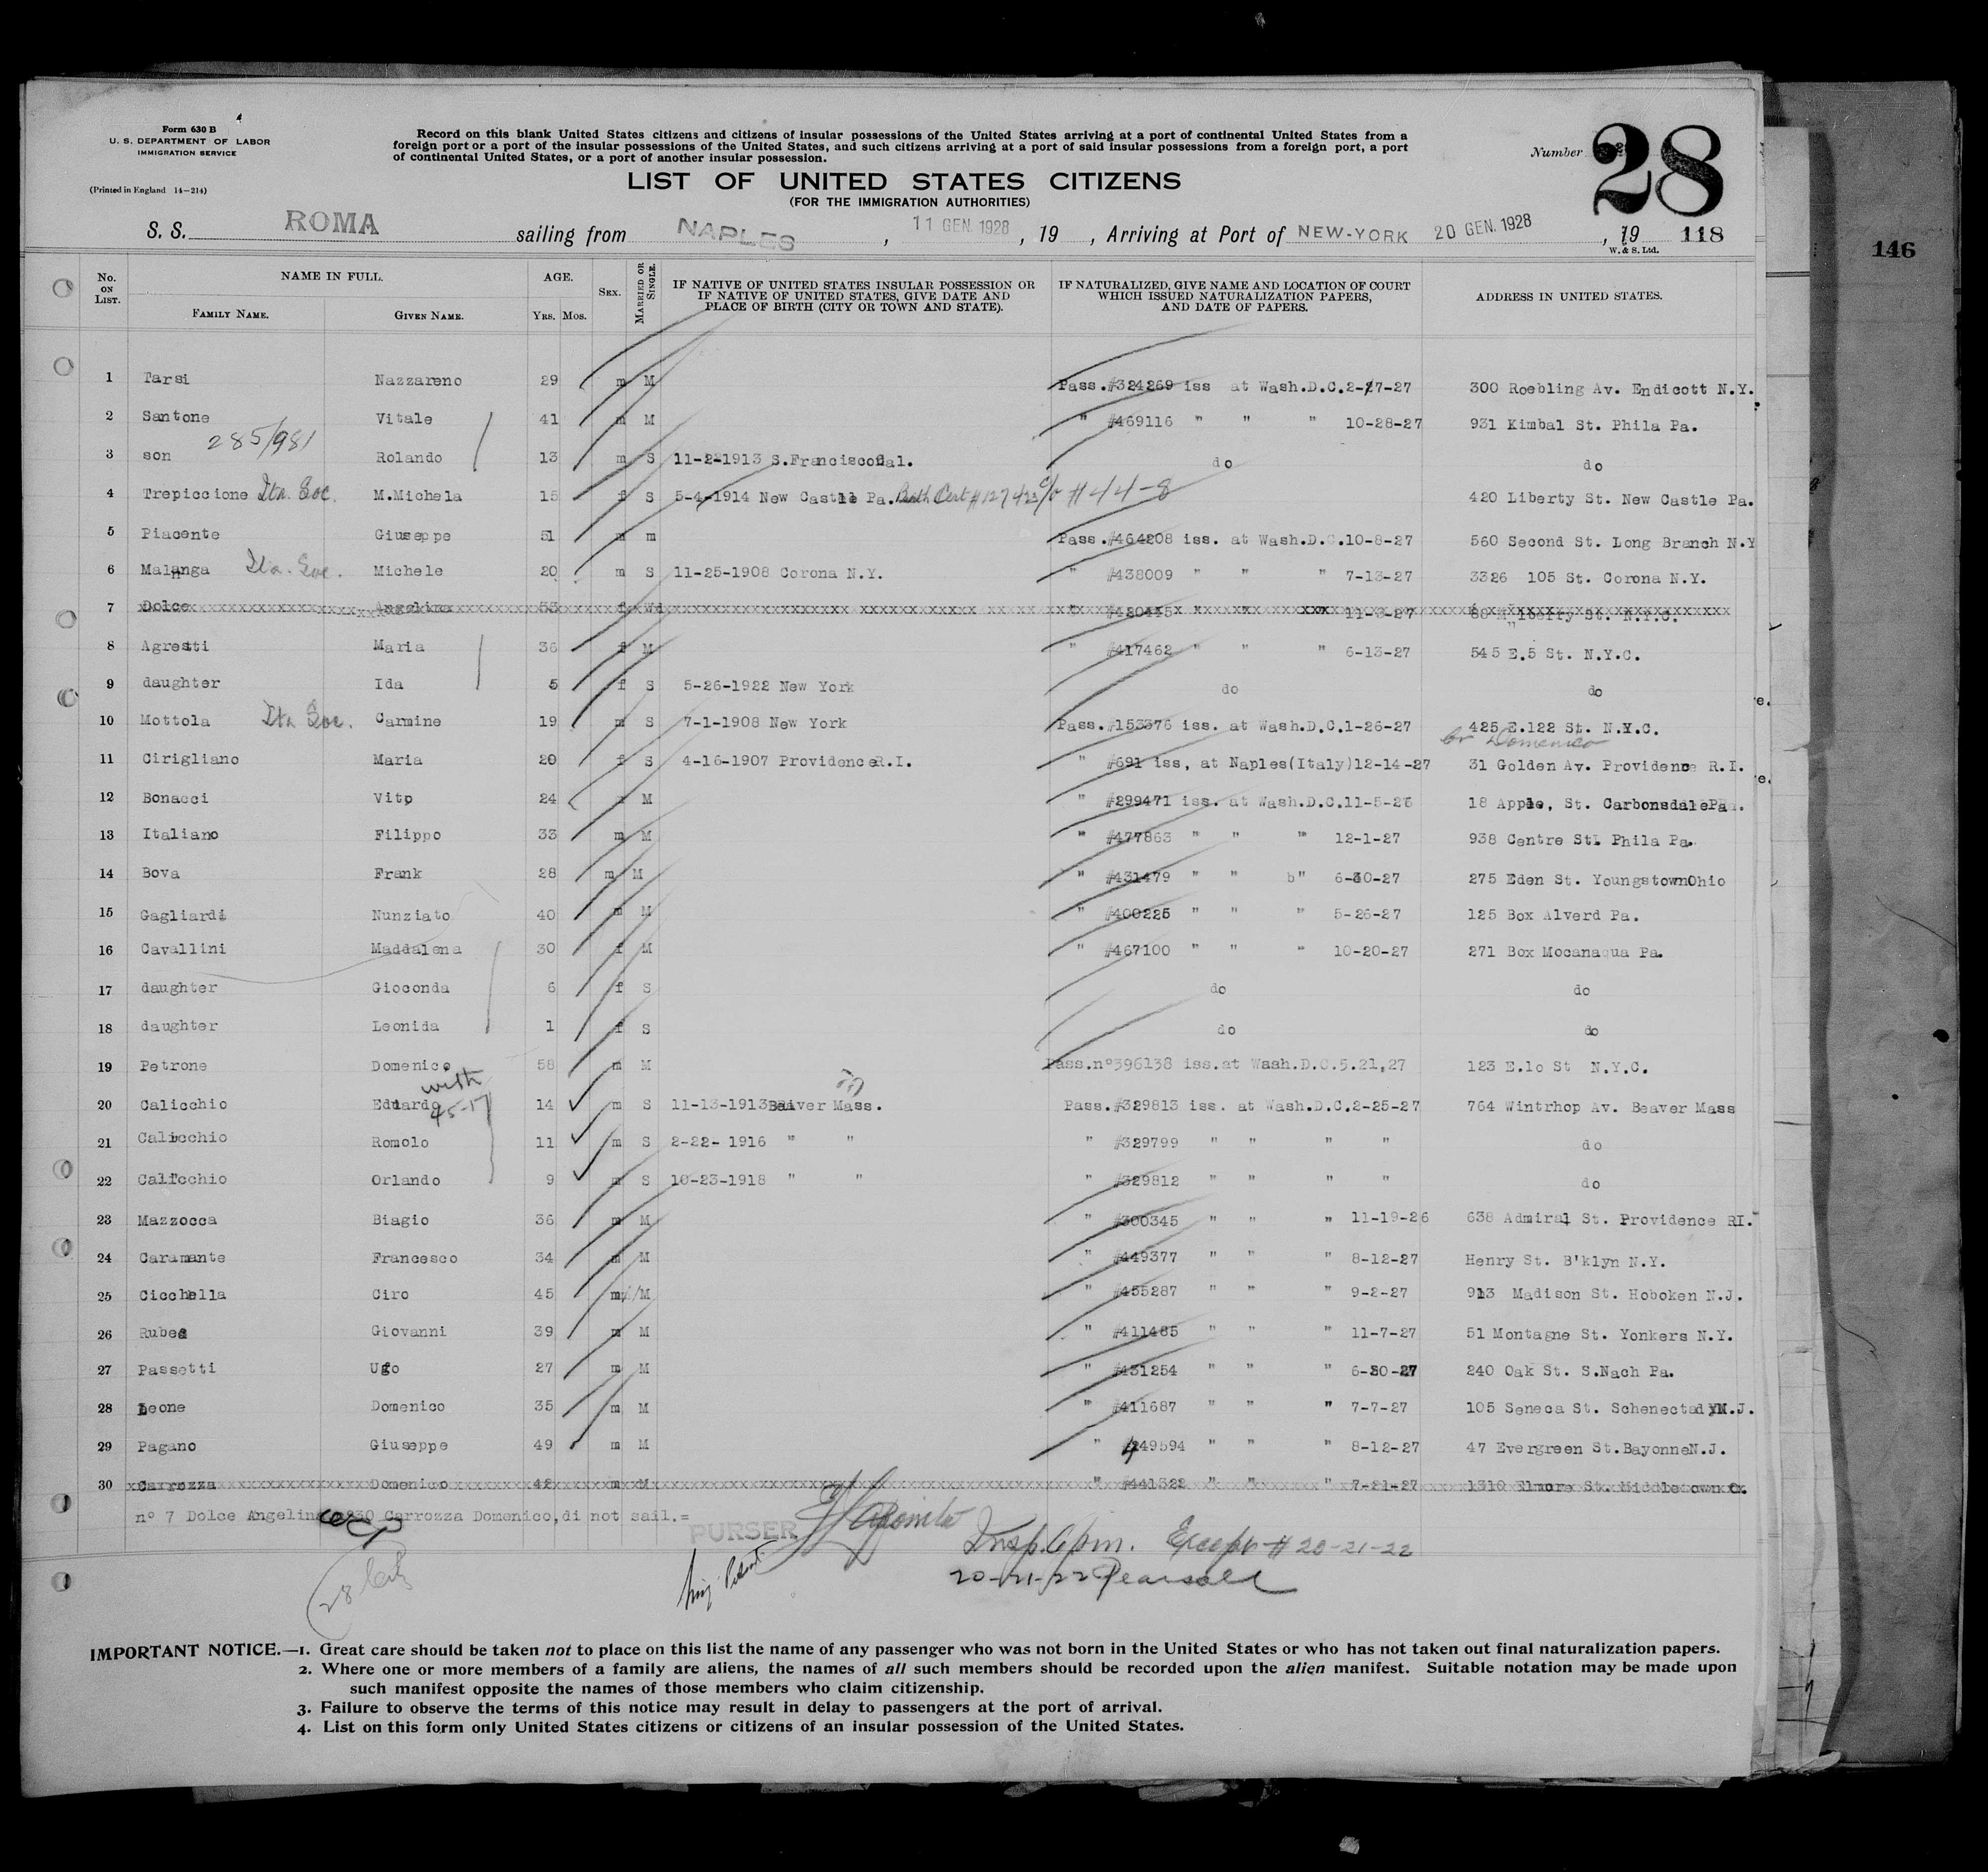 Form 630 B
U. S. DEPARTMENT OF LABOR
IMMIGRATION SERVICE
(Printed in England 14-214)
Record on this blank United States citizens and citizens of insular possessions of the United States arriving at a port of continental United States from a
foreign port or a port of the insular possessions of the United States, and such citizens arriving at a port of said insular possessions from a foreign port, a port
of continental United States, or a port of another insular possession.
Number 28
LIST OF UNITED STATES CITIZENS
(FOR THE IMMIGRATION AUTHORITIES)
S. S. ROMA sailing from NAPLES, 11 GEN. 1928, 19 , Arriving at Port of NEW-YORK 20 GEN. 1928, 19 118
W. & S. Ltd.
146
No. ON LIST. NAME IN FULL. AGE. SEX. MARRIED OR SINGLE. IF NATIVE OF UNITED STATES INSULAR POSSESSION OR IF NATIVE OF UNITED STATES, GIVE DATE AND PLACE OF BIRTH (CITY OR TOWN AND STATE). IF NATURALIZED, GIVE NAME AND LOCATION OF COURT WHICH ISSUED NATURALIZATION PAPERS, AND DATE OF PAPERS. ADDRESS IN UNITED STATES.
FAMILY NAME. GIVEN NAME. YRS. MOS.
1 Tarsi Nazzareno 29 m M Pass.#324269 iss at Wash.D.C.2-17-27 300 Roebling Av. Endicott N.Y.
2 Santone Vitale 41 m M " #469116 " " " 10-28-27 931 Kimbal St. Phila Pa.
285/981
3 son Rolando 13 m S 11-2-1913 S.Francisco Cal. do do
4 Trepiccione Ita. Soc. M.Michela 15 f S 5-4-1914 New Castle Pa. Birth Cert #127423 c/o #44-8 420 Liberty St. New Castle Pa.
5 Piacente Giuseppe 51 m m Pass.#464208 iss. at Wash.D.C.10-8-27 560 Second St. Long Branch N.Y
6 Malanga Ita. Soc. Michele 20 m S 11-25-1908 Corona N.Y. " #438009 " " " 7-13-27 3326 105 St. Corona N.Y.
7 Dolce Angelina 53 f Wd " #480445 " " 11-3-27 88 Mulberry St. N.Y.C.
8 Agresti Maria 36 f M " #417462 " " " 6-13-27 545 E.5 St. N.Y.C.
9 daughter Ida 5 f S 5-26-1922 New York do do
10 Mottola Ita Soc. Carmine 19 m S 7-1-1908 New York Pass.#153376 iss. at Wash.D.C.1-26-27 425 E.122 St. N.Y.C.
br Domenico
11 Cirigliano Maria 20 f S 4-16-1907 Providence R.I. " #691 iss, at Naples(Italy)12-14-27 31 Golden Av. Providence R.I.
12 Bonacci Vito 24 M " #299471 iss. at Wash.D.C.11-5-26 18 Apple, St. Carbonsdale Pa.
13 Italiano Filippo 33 m M " #477863 " " " 12-1-27 938 Centre St. Phila Pa.
14 Bova Frank 28 m M " #431479 " " b" 6-30-27 275 Eden St. Youngstown Ohio
15 Gagliardi Nunziato 40 m M " #400225 " " " 5-26-27 125 Box Alverd Pa.
16 Cavallini Maddalena 30 f M " #467100 " " " 10-20-27 271 Box Mocanaqua Pa.
17 daughter Gioconda 6 f S do do
18 daughter Leonida 1 f S do do
19 Petrone Domenico 58 m M Pass.n°396138 iss.at Wash.D.C.5.21,27 123 E.lo St N.Y.C.
with 45-17
20 Calicchio Eduardo 14 m S 11-13-1913 Beaver Mass. Pass.#329813 iss. at Wash.D.C.2-25-27 764 Wintrhop Av. Beaver Mass
21 Calicchio Romolo 11 m S 2-22- 1916 " " " #329799 " " " " do
22 Calicchio Orlando 9 m S 10-23-1918 " " " #329812 " " " " do
23 Mazzocca Biagio 36 m M " #300345 " " " 11-19-26 638 Admiral St. Providence RI.
24 Caramante Francesco 34 m M " #449377 " " " 8-12-27 Henry St. B'klyn N.Y.
25 Cicchella Ciro 45 m M " #455287 " " " 9-2-27 913 Madison St. Hoboken N.J.
26 Rubea Giovanni 39 m M " #411485 " " " 11-7-27 51 Montagne St. Yonkers N.Y.
27 Passetti Ugo 27 m M " #431254 " " " 6-30-27 240 Oak St. S.Nach Pa.
28 Leone Domenico 35 m M " #411687 " " " 7-7-27 105 Seneca St. Schenectady N.J.
29 Pagano Giuseppe 49 m M " #449594 " " " 8-12-27 47 Evergreen St.Bayonne N.J.
30 Carrozza Domenico 42 m M " #441322 " " " 7-21-27 1310 Elmore St. Middletown
n° 7 Dolce Angelina 30 Carrozza Domenico,di not sail.=
PURSER
Insp. Adm. Except # 20-21-22
20-21-22 Pearsall
IMPORTANT NOTICE.—1. Great care should be taken not to place on this list the name of any passenger who was not born in the United States or who has not taken out final naturalization papers.
2. Where one or more members of a family are aliens, the names of all such members should be recorded upon the alien manifest. Suitable notation may be made upon
such manifest opposite the names of those members who claim citizenship.
3. Failure to observe the terms of this notice may result in delay to passengers at the port of arrival.
4. List on this form only United States citizens or citizens of an insular possession of the United States.